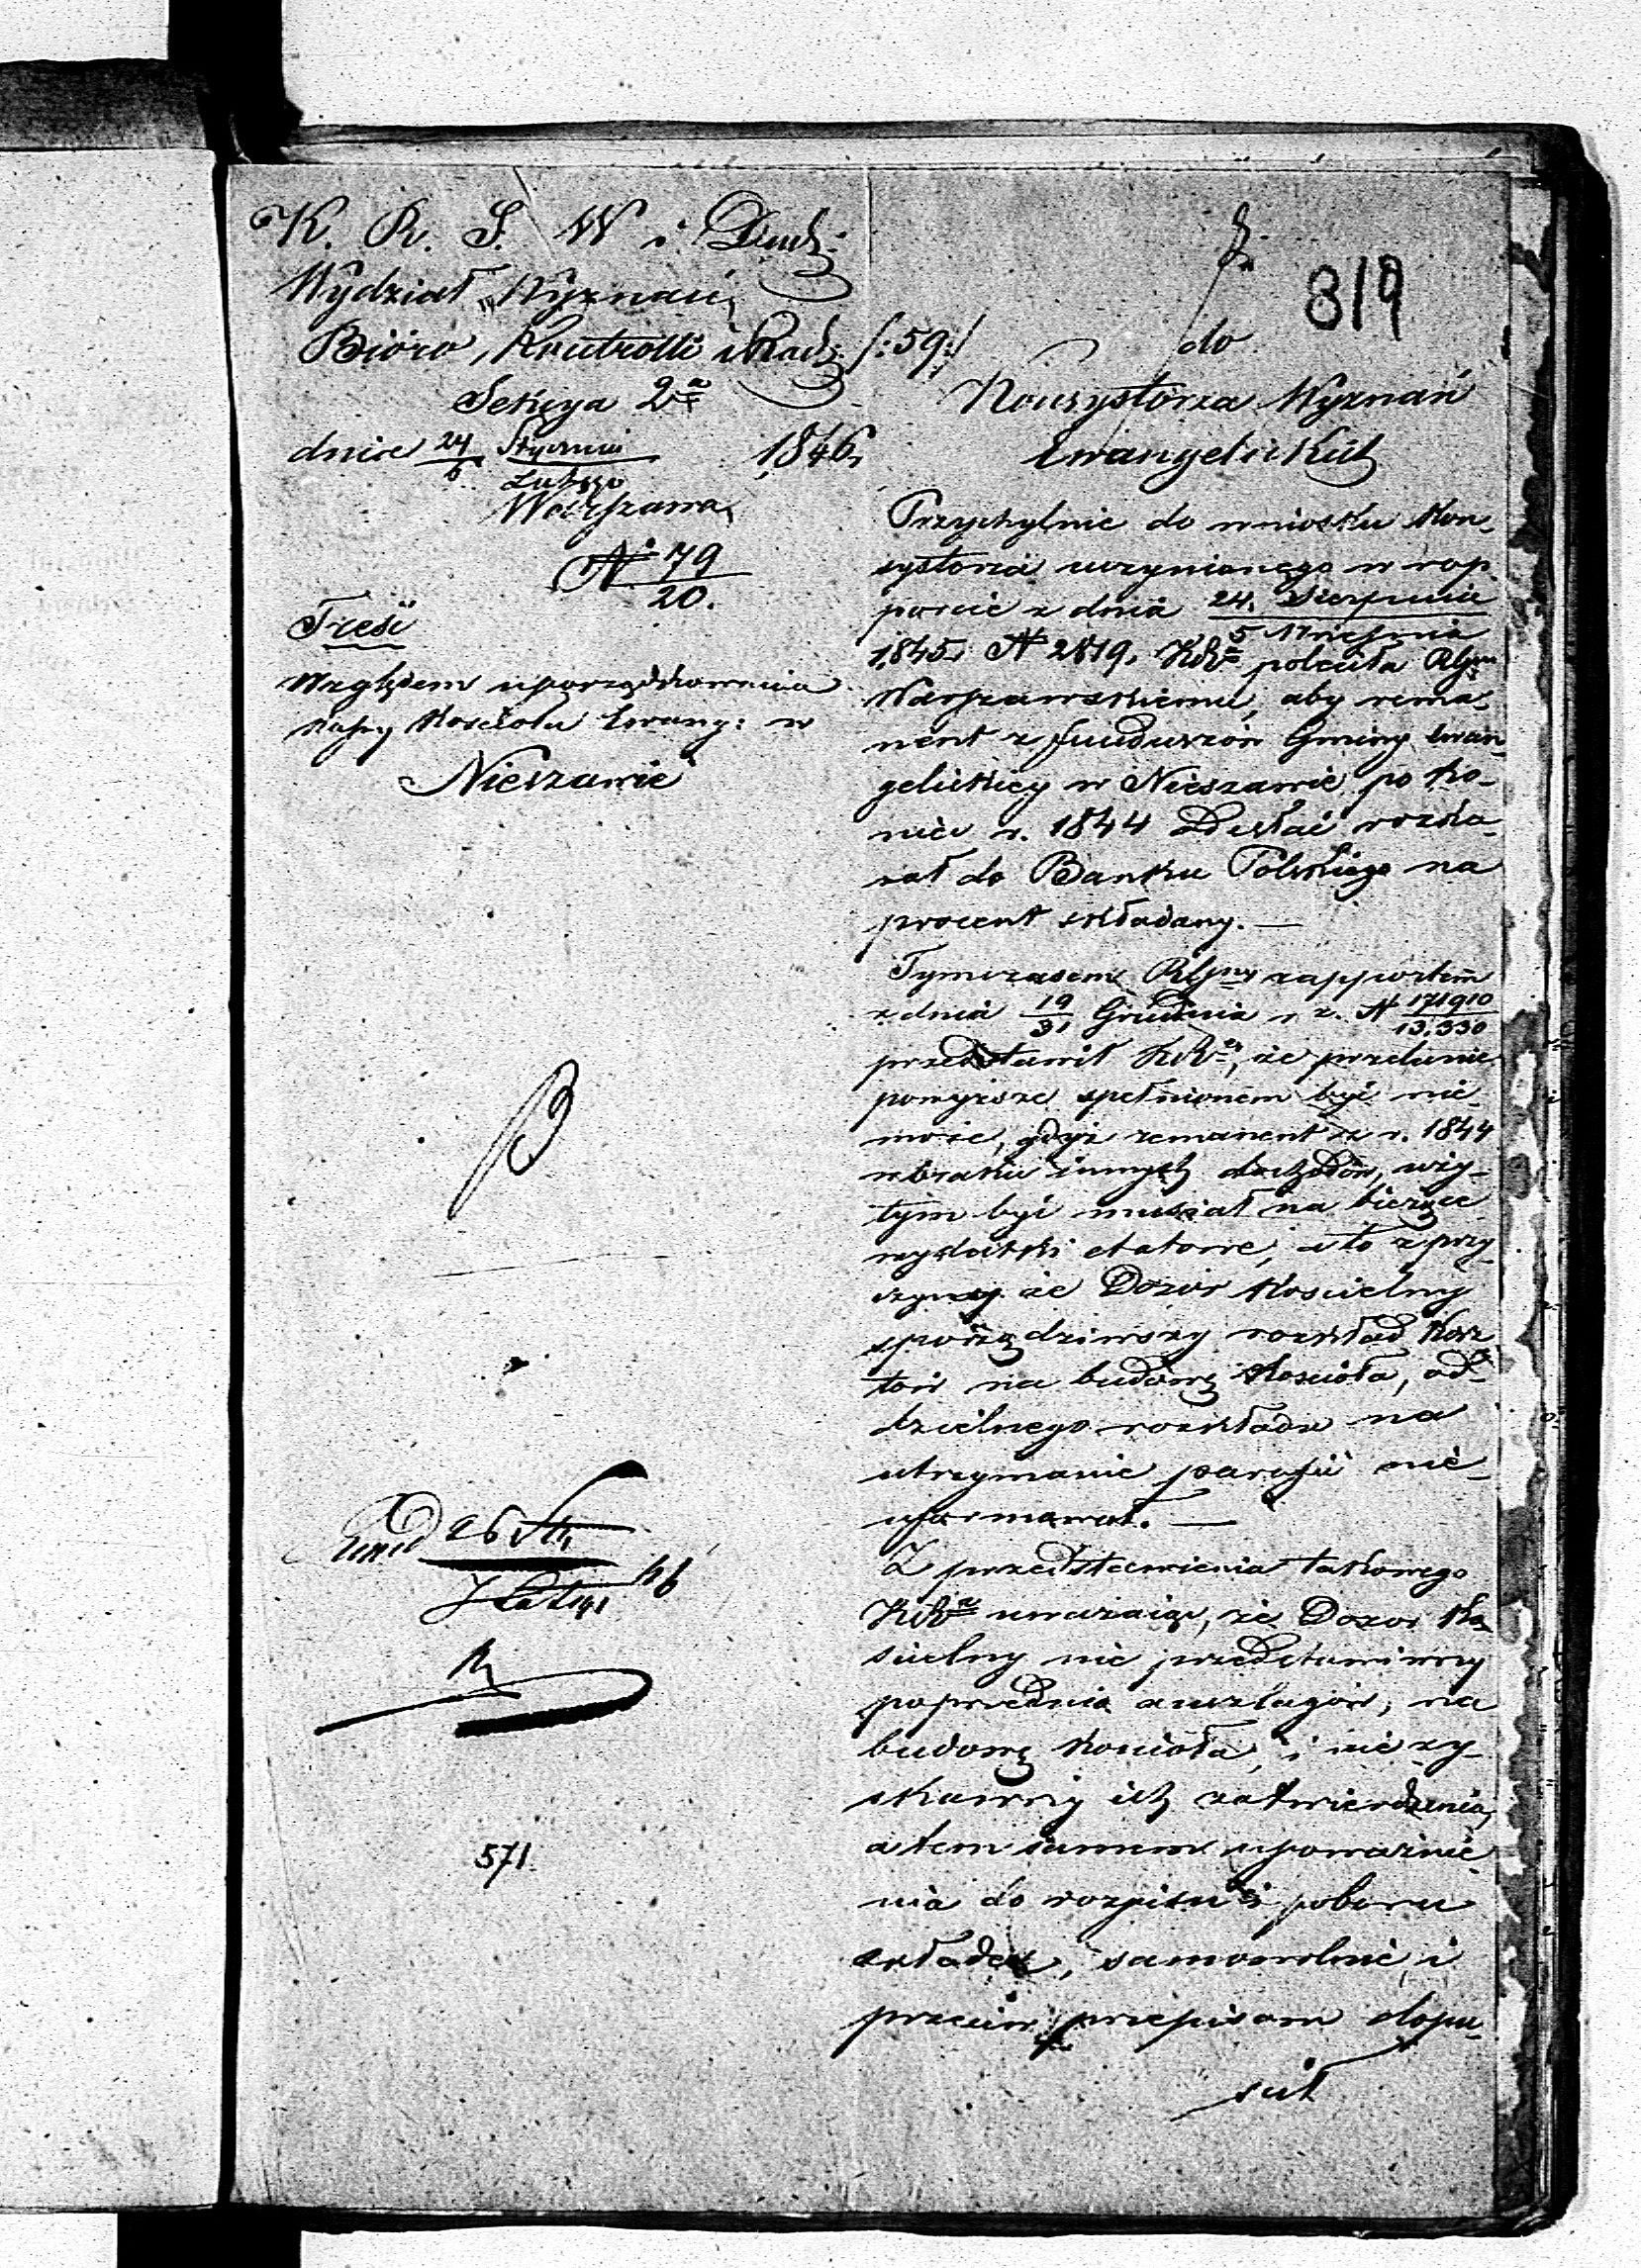 K. R. S. W i Duch:
Wydział Wyznań
Bióro, Kontrolli i Rach: /:59:/
Sekcya 2a
dnia 24/6 Stycznia/Lutego 1846
Warszawa
№ 79/20.
Treść
Względem uporządkowania
kassy Kościoła Ewang: w
Nieszawie
Exped 26 St/7 Lutego 46
571
319
do
Konsystorza Wyznań
Ewangelickich
Przychylnie do wniosku Kon-
systorza uczynionego w rap-
porcie z dnia 24. Sierpnia/5 Września
1845. N 2819, KRa poleciła RGjm
Warszawskiemu, aby rema-
nent z funduszów Gminy Ewan-
gelickiey w Nieszawie po ko-
niec r. 1844 odesłać rozka-
zał do Banku Polskiego na
procent składany. —
Tymczasem RGjny rapportem
z dnia 19/31 Grudnia r z. N 171910/13,330
przedstawił KRy, że polecenie
powyższe spełnionem być nie-
może, gdyż remanent z r. 1844
w braku innych dochodów, uży-
tym być musiał na bieżące
wydatki etatowe, a to z przy-
czyny że Dozór Kościelny
sporządziwszy rozkład kosz-
tów na budowę Kościoła, od-
dzielnego rozkładu na
utrzymanie parafii nie-
uformował. —
Z przedstawienia takowego
KRa uważając, że Dozór Ko-
ścielny nie przedstawiwszy
poprzednio anszlagów, na
budowę Kościoła, i nie zy-
skawszy ich zatwierdzenia,
a tem samem upoważnie-
nia do rozpisu i poboru
składek, samowolnie i
przeciw przepisom dopu-
ścił